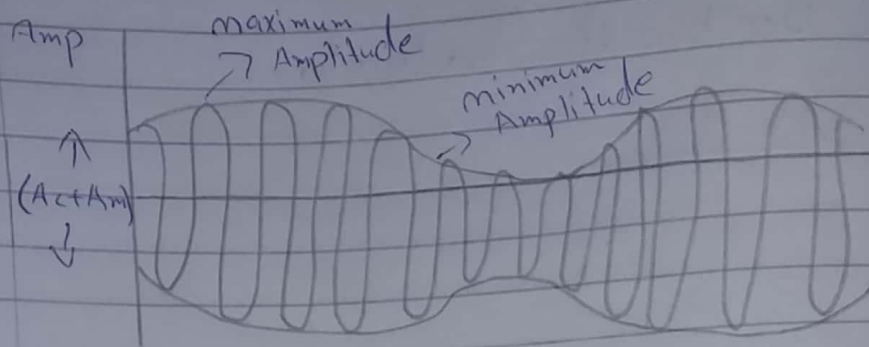 Amp
maximum
Amplitude
minimum
Amplitude
(Ac+Am)